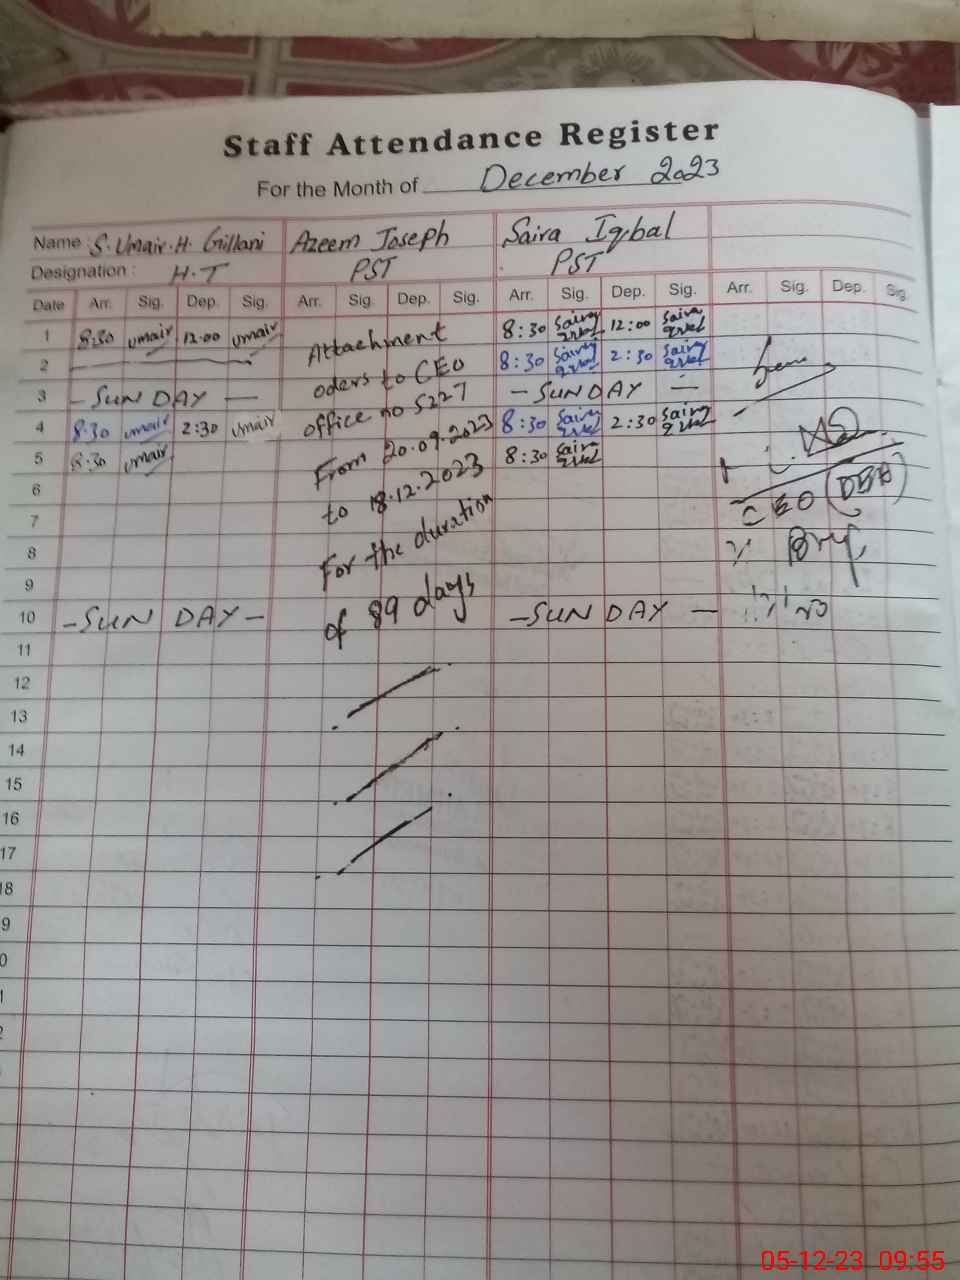 Staff Attendance Register
For the Month of December 2023
Name : S. Umair. H. Gillani Azeem Joseph Saira Iqbal
Designation : H.T PST PST
Date Arr. Sig. Dep. Sig. Arr. Sig. Dep. Sig. Arr. Sig. Dep. Sig. Arr. Sig. Dep. Sig.
1 8:30 umair 12:00 umair Attachment 8:30 Saira 12:00 Saira
2 oders to CEO 8:30 Saira 2:30 Saira
3 - SUNDAY - office no 5227 - SUNDAY -
4 8:30 umair 2:30 umair From 20.09.2023 8:30 Saira 2:30 Saira
5 8:30 umair to 18.12.2023 8:30 Saira
6 CEO (DEA)
7 For the duration
8
9 of 89 days
10 - SUNDAY - - SUNDAY -
11
12
13
14
15
16
17
18
9
0
1
2
05-12-23 09:55